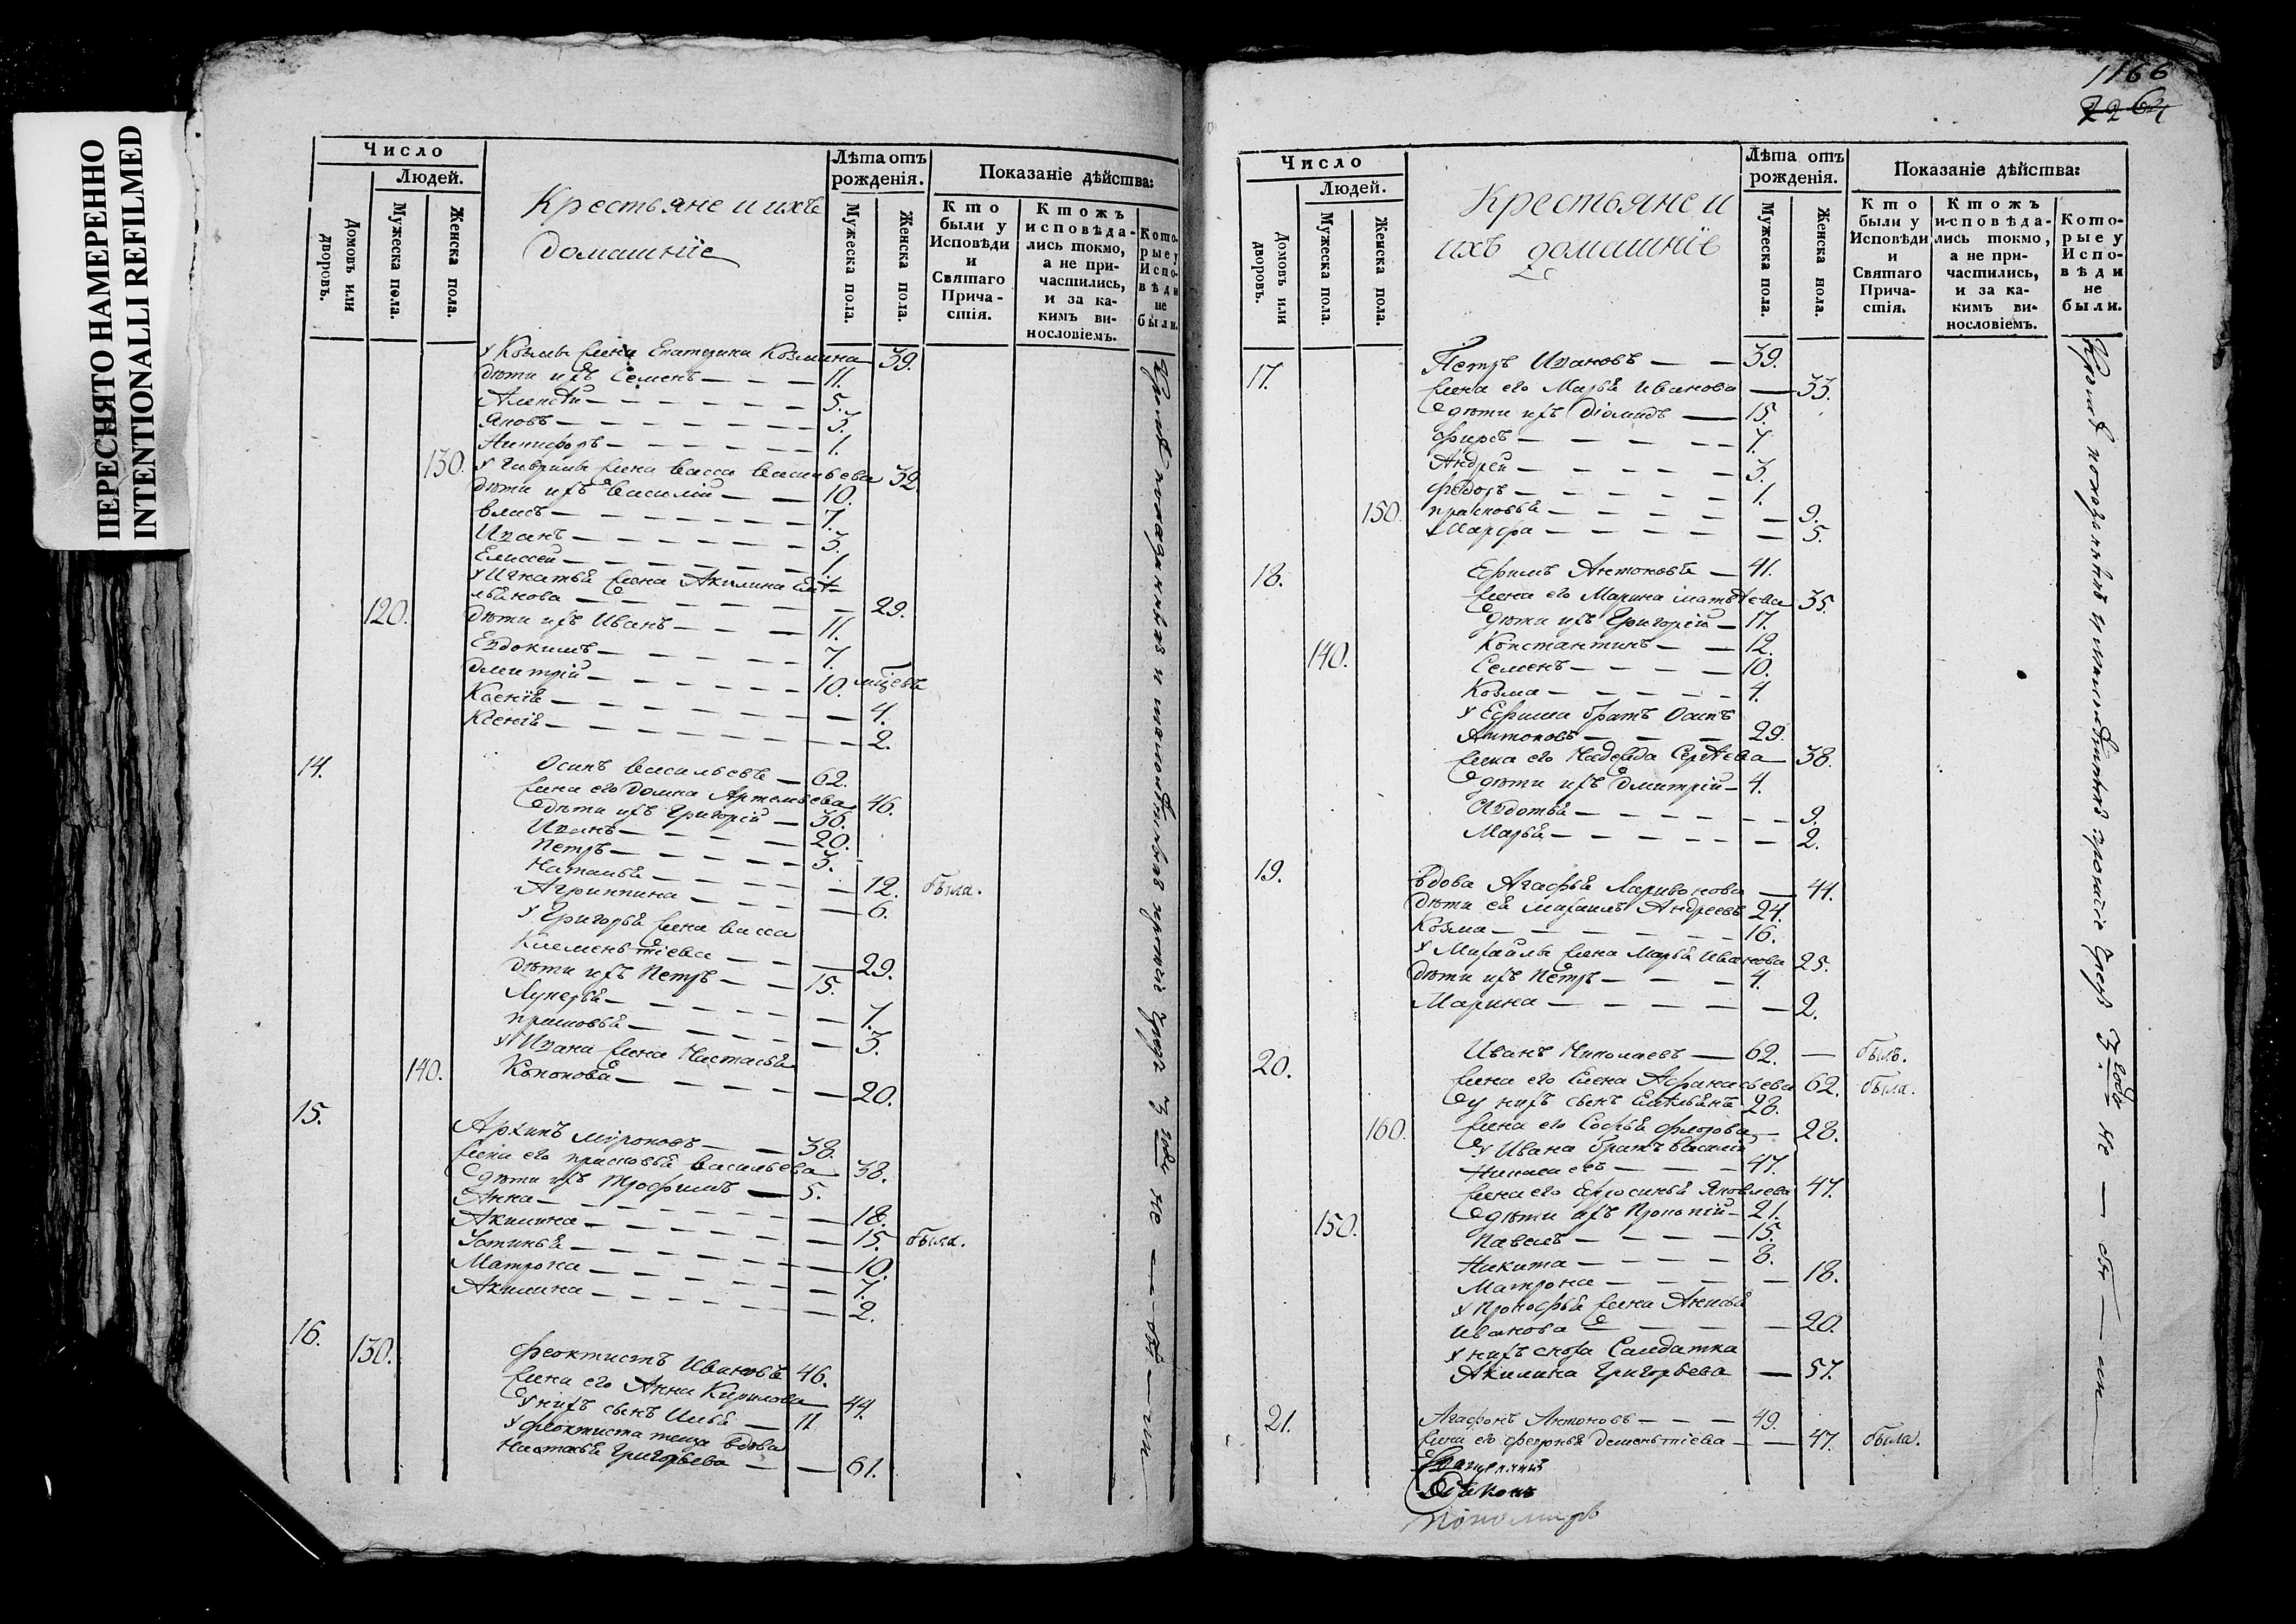 ПЕРЕСНЯТО НАМЕРЕННО
INTENTIONALLI REFILMED
Число
Людей.
Домовъ или дворовъ.
Мужеска пола.
Женска пола.
Крестьяне и ихъ
домашніе
Лѣта отъ рожденія.
Мужеска пола.
Женска пола.
Показаніе дѣйства:
Кто были у Исповѣди и Святаго Прича-стія.
Ктожъ исповѣда-лись токмо, а не при-частились, и за ка-кимъ ви-нословіемъ.
Кото-рые у Испо-вѣди не были.
у Козмы жена Екатерина Козмина 39.
дѣти ихъ Семенъ 11.
Алексѣй 5.
Яковъ 3.
Никифоръ 1.
130. у Гаврилы жена Васса Васильева 32.
дѣти ихъ Василій 10.
Власъ 7.
Иванъ 3.
Елисей 1.
у Игнатья жена Акилина Емѣ-
льянова 29.
120. дѣти ихъ Иванъ 11.
Евдокимъ 7.
Дмитрій 10.
Ксенія 4.
Ксенія 2.
14. Осипъ Васильевъ 62.
жена его Домна Артемьева 46.
дѣти ихъ Григорій 36.
Иванъ 20.
Петръ 3.
Наталья 12. была.
Агриппина 6.
у Григорья жена Васса
Клементіева 29.
дѣти ихъ Петръ 15.
Лукерья 7.
Прасковья 3.
у Ивана жена Настасья
140. Кононова 20.
15. Архипъ Мироновъ 38.
жена его Прасковья Васильева 38.
дѣти ихъ Трофимъ 5.
Анна 18.
Акилина 15. была.
Устинья 10.
Матрона 7.
Акилина 2.
16. 130. Феоктистъ Ивановъ 46.
жена его Анна Кирилова 44.
у нихъ сынъ Илья 11
у Феоктиста теща вдова
Настасья Григорьева 61.
1166
2264
Число
Людей.
Домовъ или дворовъ.
Мужеска пола.
Женска пола.
Крестьяне и
ихъ домашніе
Лѣта отъ рожденія.
Мужеска пола.
Женска пола.
Показаніе дѣйства:
Кто были у Исповѣди и Святаго Прича-стія.
Ктожъ исповѣда-лись токмо, а не при-частились, и за ка-кимъ ви-нословіемъ.
Кото-рые у Испо-вѣди не были.
17. Петръ Ивановъ 39.
жена его Марья Иванова 33.
дѣти ихъ Діомидъ 15.
Фирсъ 7.
Андрей 3.
Федоръ 1.
150. Прасковья 9.
Марфа 5.
18. Ефимъ Антоновъ 41.
жена его Марина Матвѣева 35.
дѣти ихъ Григорій 17.
140. Константинъ 12.
Семенъ 10.
Козма 4.
у Ефима братъ Осипъ
Антоновъ 29.
жена его Надежда Сергѣева 38.
дѣти ихъ Дмитрій 4.
Авдотья 9.
Марья 2.
19. вдова Агафья Ларивонова 44.
дѣти ея Михаилъ Андреевъ 24.
Козма 16.
у Михайлы жена Марья Иванова 25.
дѣти ихъ Петръ 4.
Марина 2.
20. Иванъ Николаевъ 62. былъ.
жена его Елена Афанасьева 62. была.
у нихъ сынъ Емельянъ 28.
160. жена его Софья Флорова 28.
у Ивана братъ Василій
Николаевъ 47.
жена его Ефросинья Яковлева 47.
дѣти ихъ Прокопій 21.
150. Павелъ 15.
Никита 8.
Матрона 18.
у Прокофья жена Анисья
Иванова 20.
у нихъ сноха Салдатка
Акилина Григорьева 57.
21. Агафонъ Антоновъ 49.
жена его Феврónья Дементіева 47. была.
Священникъ
Діаконъ
Пономарь